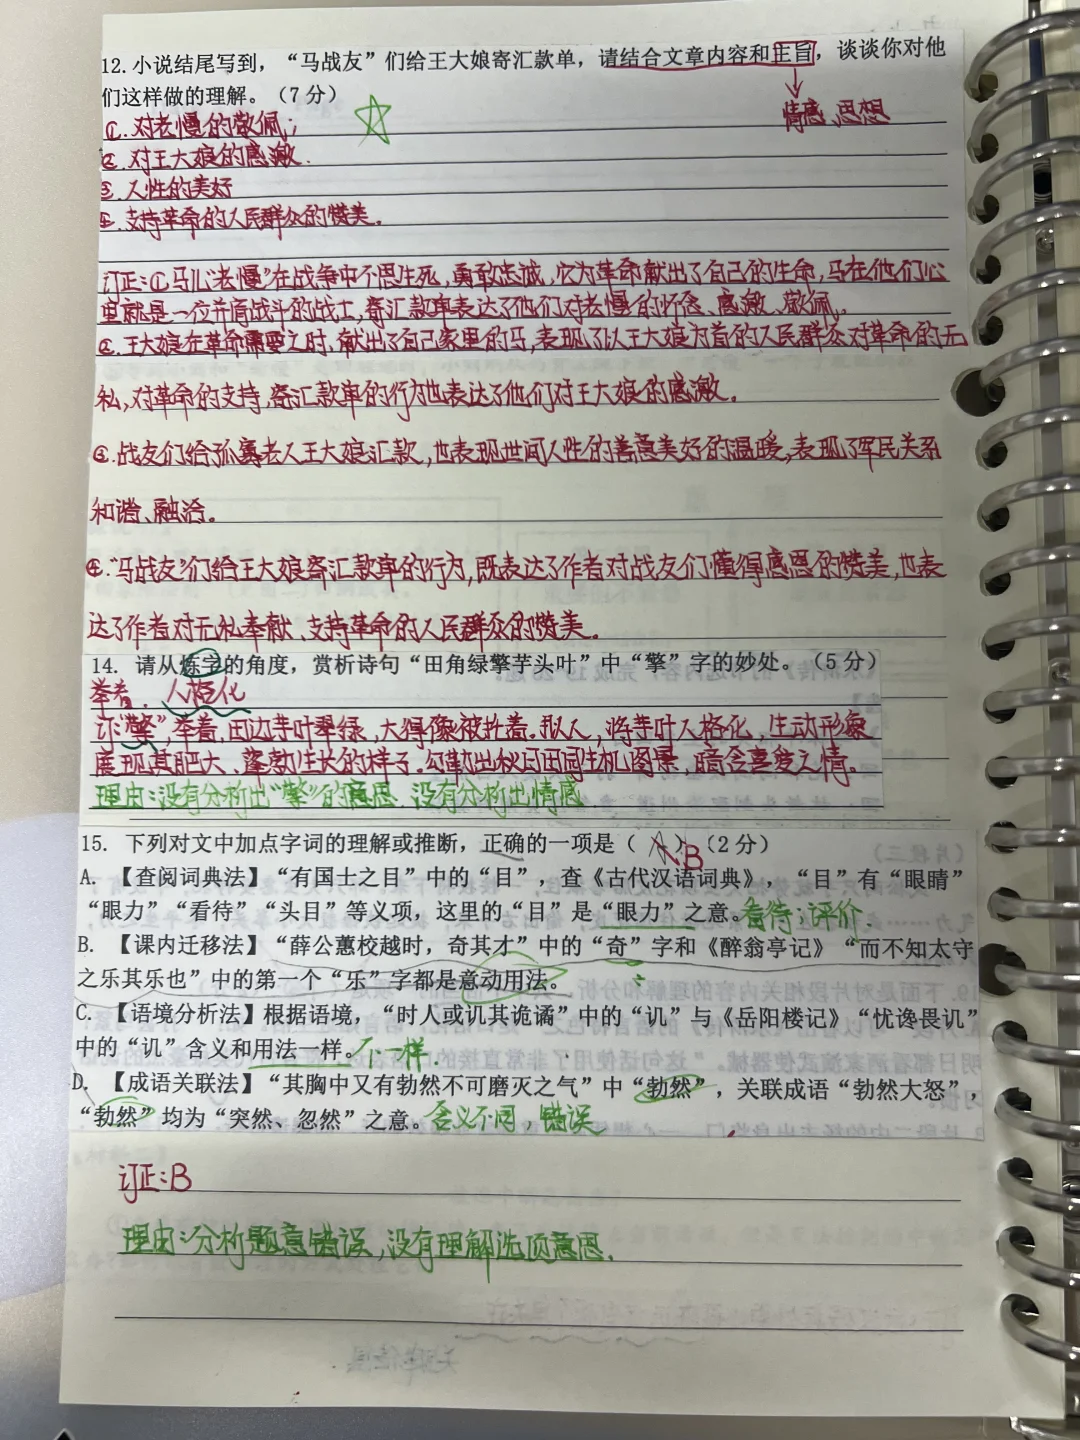 12.小说结尾写到，“马战友”们给王大娘寄汇款单，请结合文章内容和主旨，谈谈你对他
们这样做的理解。（7分）
情感、思想
①.对老慢的敬佩；
②.对王大娘的感激.
③.人性的美好
④.支持革命的人民群众的赞美。
订正:①马儿“老慢”在战争中不思生死，勇敢忠诚，它为革命献出了自己的生命，马在他们心
里就是一位并肩战斗的战士，寄汇款单表达了他们对老慢的怀念、感激、敬佩。
②.王大娘在革命需要之时，献出了自己家里的马，表现了以王大娘为首的人民群众对革命的无
私，对革命的支持，寄汇款单的行为也表达了他们对王大娘的感激。
③.战友们给孤寡老人王大娘汇款，也表现世间人性的善意美好的温暖，表现了军民关系
和谐、融洽。
④.“马战友”们给王大娘寄汇款单的行为，既表达了作者对战友们懂得感恩的赞美，也表
达了作者对无私奉献、支持革命的人民群众的赞美。
14. 请从炼字的角度，赏析诗句“田角绿擎芋头叶”中“擎”字的妙处。（5分）
举着. 人格化
订:“擎”，举着，田边芋叶翠绿，大得像被托着。拟人，将芋叶人格化，生动形象
展现其肥大、蓬勃生长的样子。勾勒出秋日田园生机图景，暗含喜爱之情。
理由:没有分析出“擎”的意思.没有分析出情感
15. 下列对文中加点字词的理解或推断，正确的一项是（ ）B（2分）
A. 【查阅词典法】“有国士之目”中的“目”，查《古代汉语词典》，“目”有“眼睛”
“眼力”“看待”“头目”等义项，这里的“目”是“眼力”之意。看待;评价.
B. 【课内迁移法】“薛公蕙校越时，奇其才”中的“奇”字和《醉翁亭记》“而不知太守
之乐其乐也”中的第一个“乐”字都是意动用法。
C. 【语境分析法】根据语境，“时人或讥其诡谲”中的“讥”与《岳阳楼记》“忧谗畏讥”
中的“讥”含义和用法一样。不一样
D. 【成语关联法】“其胸中又有勃然不可磨灭之气”中“勃然”，关联成语“勃然大怒”，
“勃然”均为“突然、忽然”之意。含义不同，错误
订正:B
理由:分析题意错误，没有理解选项意思.